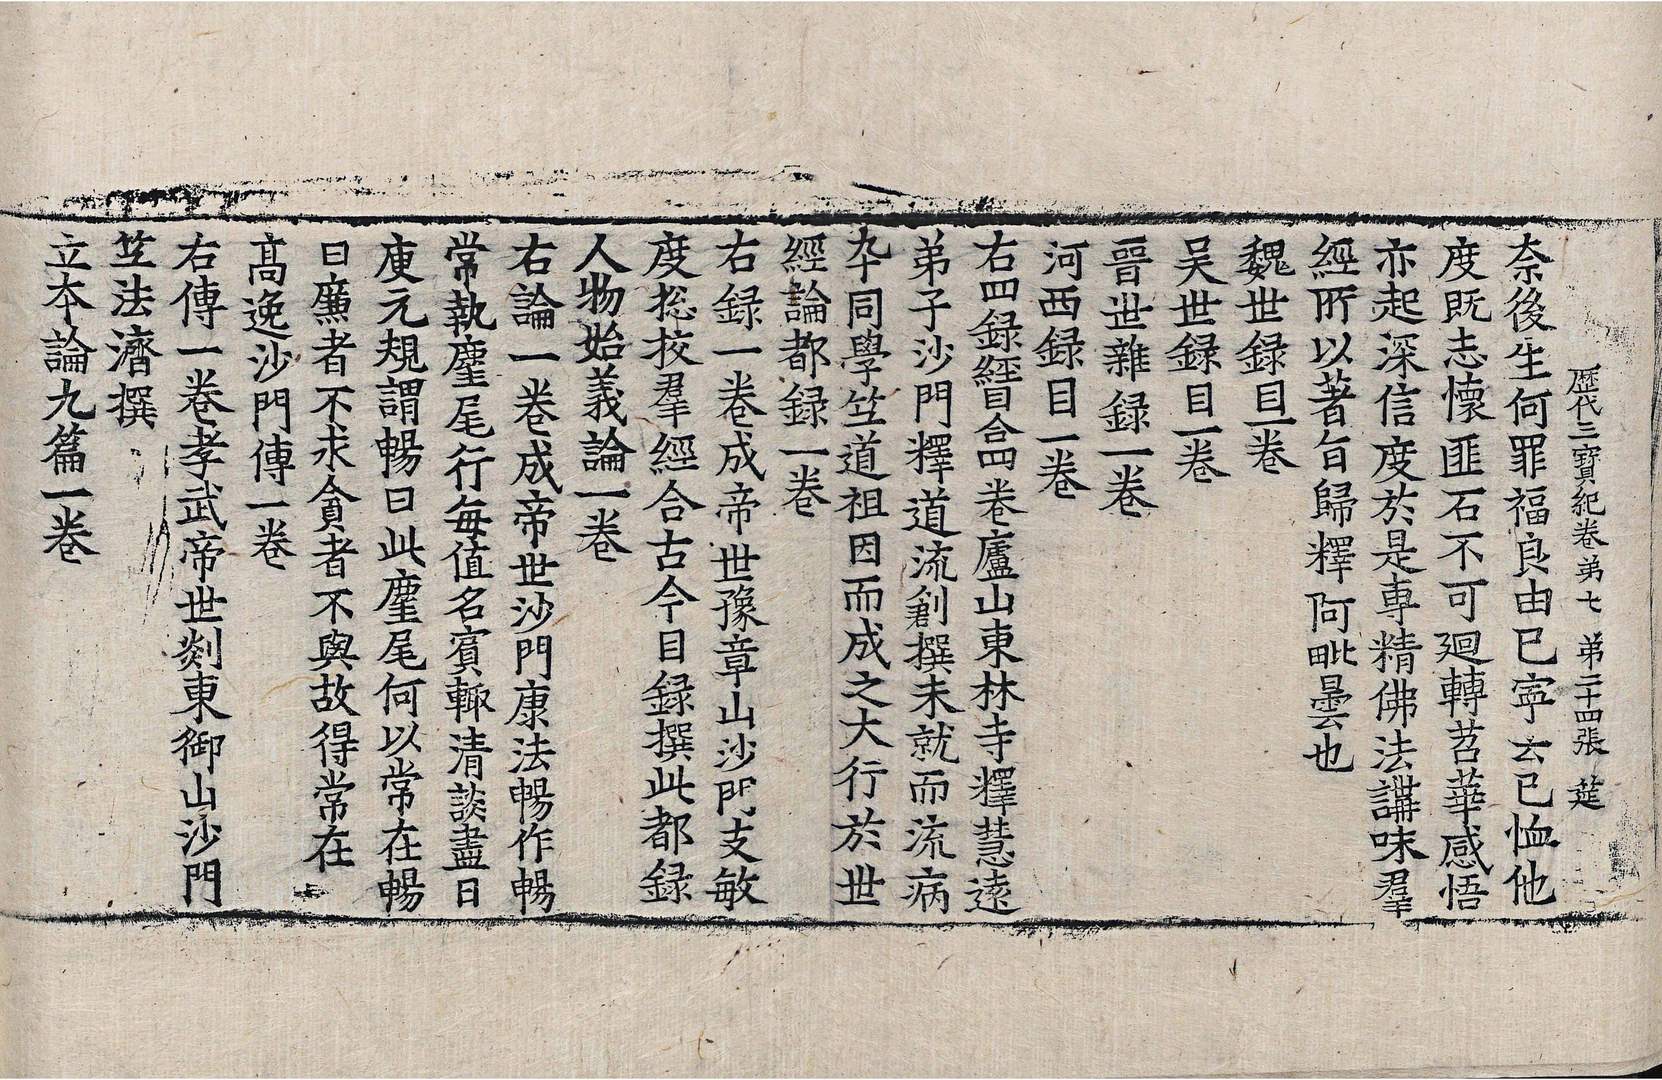 歷代三寶紀卷第七 第二十四張 莚
奈後生何罪福良由已寧云已恤他
度既志懷匪石不可迴轉苕華感悟
亦起深信度於是專精佛法講味羣
經所以著旨歸釋阿毗曇也
魏世録目一卷
吴世録目一卷
晉世雜録一卷
河西録目一卷
右四録經目合四卷廬山東林寺釋慧遠
弟子沙門釋道流創撰未就而流病
卒同學竺道祖因而成之大行於世
經論都録一卷
右録一卷成帝世豫章山沙門支敏
度捴挍羣經合古今目録撰此都録
人物始義論一卷
右論一卷成帝世沙門康法暢作暢
常執麈尾行每值名賓輙清談盡日
庾元規謂暢曰此麈尾何以常在暢
曰廉者不求貪者不與故得常在
高逸沙門傳一卷
右傳一卷孝武帝世剡東仰山沙門
竺法濟撰
立本論九篇一卷